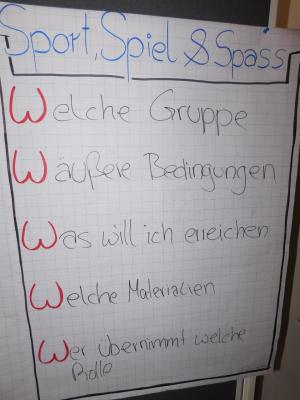 Sport, Spiel & Spass
Welche Gruppe
Wäußere Bedingungen
Was will ich erreichen
Welche Materialien
Wer übernimmt welche
Rolle